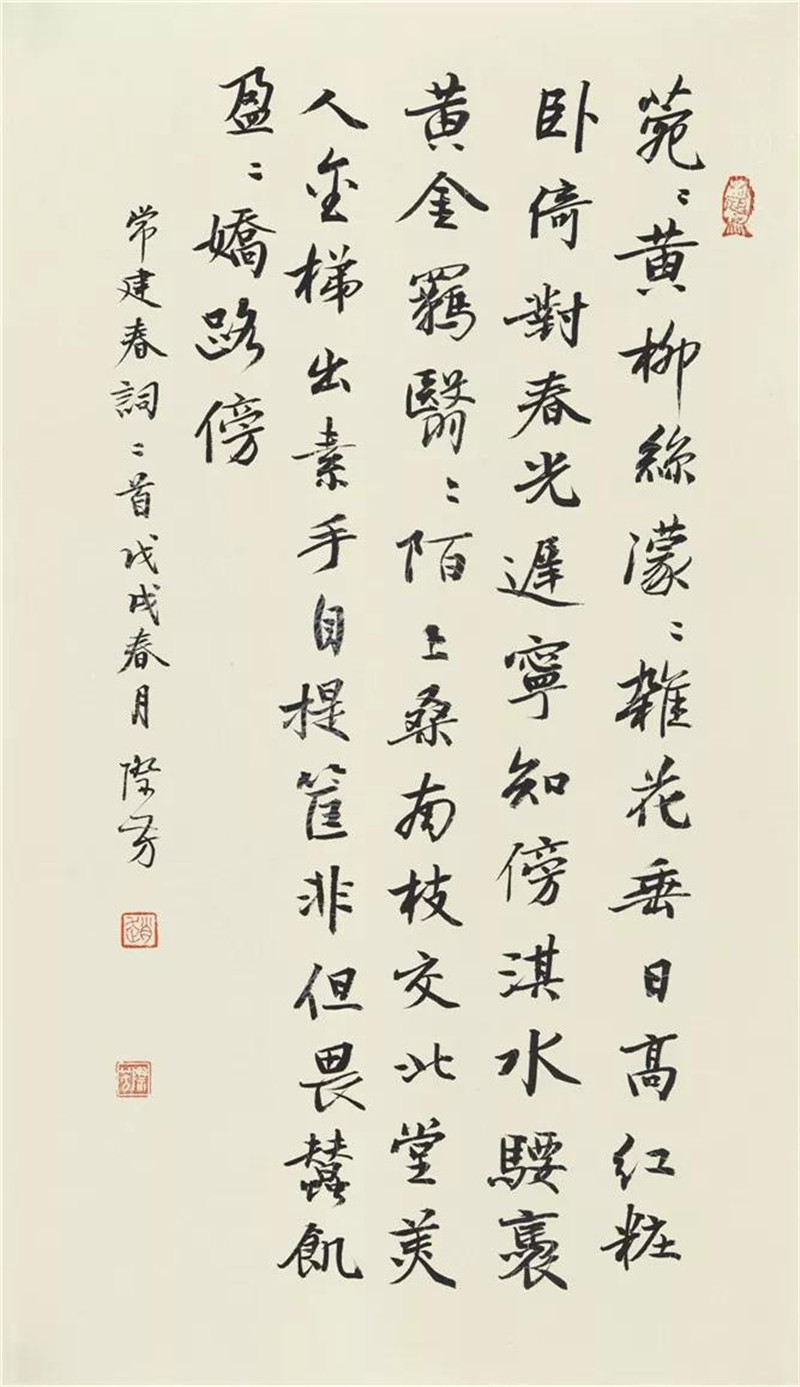 菀〻黄柳絲濛〻雜花垂日高紅粧
卧倚對春光遲寧知傍淇水騕褭
黄金羈翳〻陌上桑南枝交北堂美
人金梯出素手自提筐非但畏蠶飢
盈〻嬌路傍
常建春詞二首戊戌春月際芳
趙